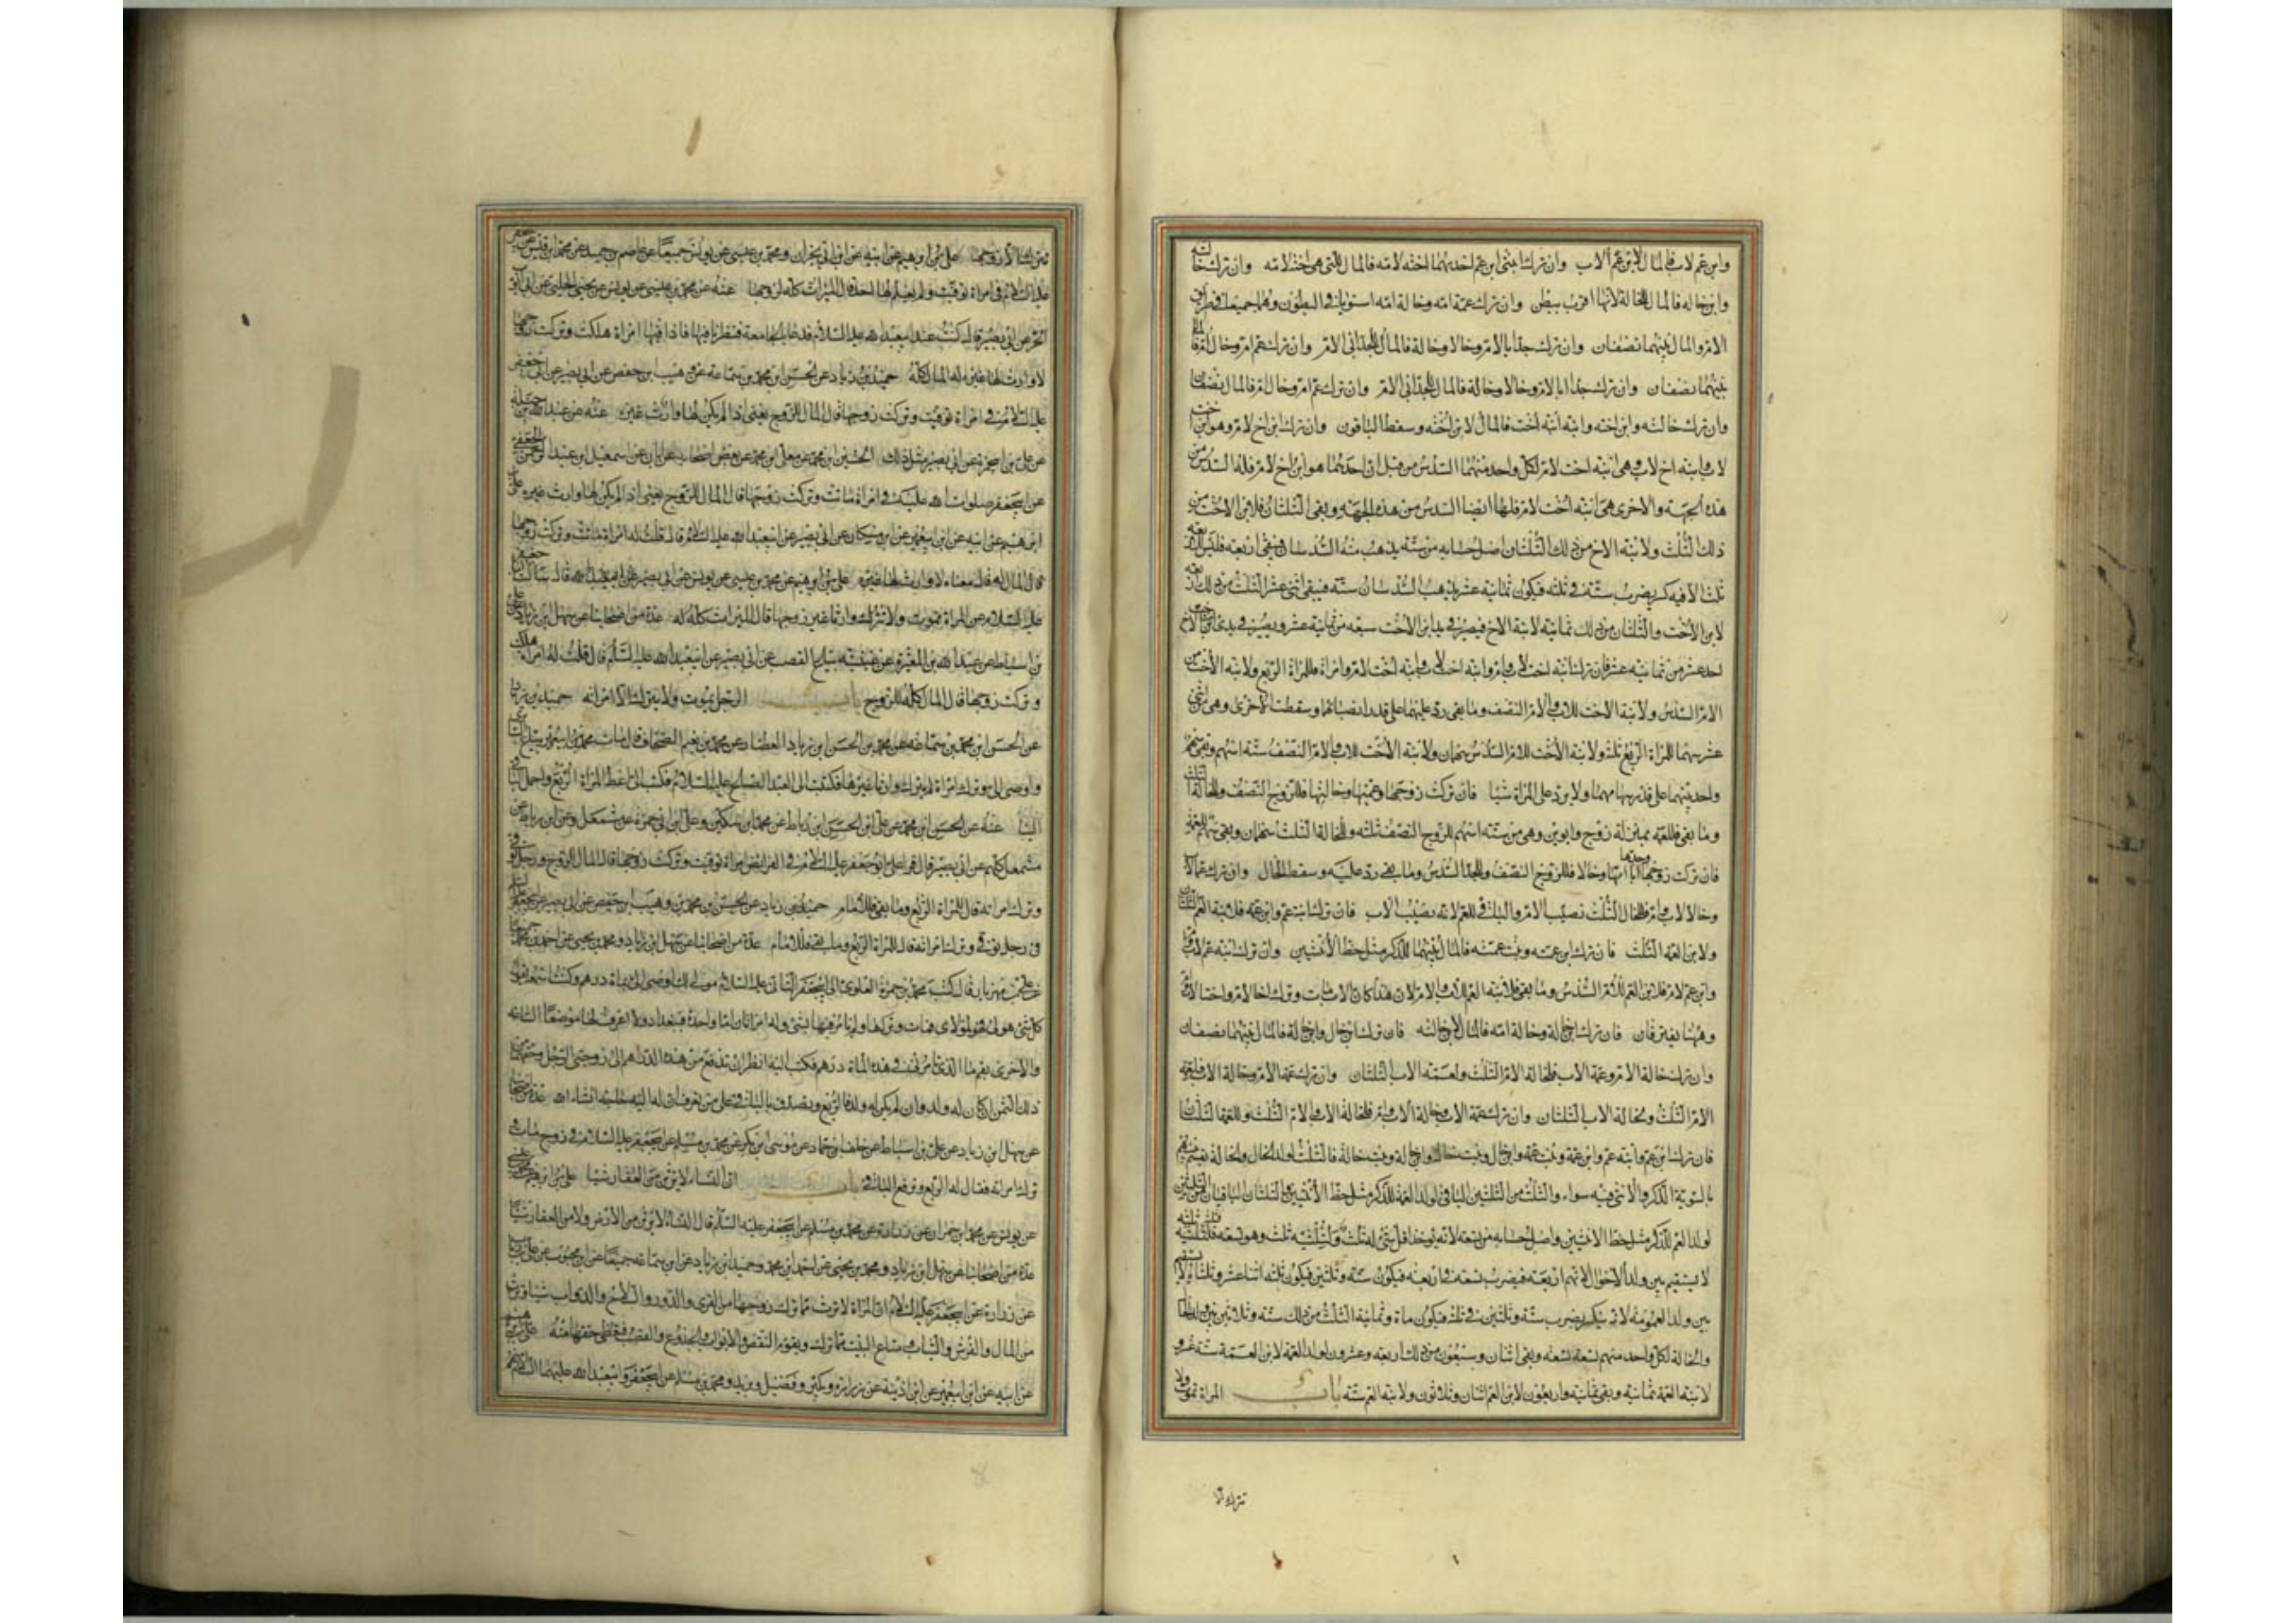 وابن عم لاب فالمال لابن عم الاب وان ترك ابنتى ابن عم احديهما اخته لامه فالمال للتى هى اخته لامه وان ترك خالته
وابن خاله فالمال للخالة لانها اقرب ببطن وان ترك عمة امه وخالة امه استويا فى البطون وهما جميعا من طريق
الام والمال بينهما نصفان وان ترك جدا ابا الام وخالا وخالة فالمال للجد ابى الام وان ترك عم ام وخال ام فالمال
بينهما نصفان وان ترك جدا ابا الام وخالا وخالة فالمال للجد ابى الام وان ترك عم ام وخال ام فالمال نصفان
وان ترك خالته وابن اخته وابنة ابنة اخت فالمال لابن اخته وسقط الباقون وان ترك ابن اخ لام وهو ابن اخت
لاب وابنة اخ لاب وهى ابنة اخت لام لكل واحد منهما السدس من قبل ان احدهما هو ابن اخ لام فله السدس من
هذه الجهة والاخرى هى ابنة اخت لام فلها ايضا السدس من هذه الجهة وبقى الثلثان فلابن الاخت من
ذلك الثلث ولابنة الاخ من ذلك الثلثان اصل حسابه من ستة يذهب منه السدسان فيبقى اربعة فليس للاربعة
ثلث الا فيه كسر يضرب ستة فى ثلثه فيكون ثمانية عشر يذهب السدسان ستة فيبقى اثنى عشر الثلث من ذلك اربعة
لابن الاخت والثلثان من ذلك ثمانية لابنة الاخ فيصير فى يد ابن الاخت سبعة من ثمانية عشر ويصير فى يد ابنة الاخ
احد عشر من ثمانية عشر فان ترك ابنة اخت لاب وام وابنة اخت لاب وابنة اخت لام وامراة فللمراة الربع ولابنة الاخت من
الام السدس ولابنة الاخت للاب والام النصف وما بقى رد عليهما على قدر انصبائهما وسقطت الاخرى وهى من اثنى
عشر سهما للمراة الربع ثلثة ولابنة الاخت للام السدس سهمان ولابنة الاخت للاب والام النصف ستة اسهم وبقى سهم
واحد بينهما على قدر سهامهما ولا يرد على المراة شيا فان تركت زوجها وعمتها وخالتها فللزوج النصف وللخالة الثلث
وما بقى فللعمة بمنزلة زوج وابوين وهى من ستة اسهم للزوج النصف ثلثة وللخالة الثلث سهمان وبقى سهم للعمة
فان تركت زوجها وجدها ابا امها وخالا فللزوج النصف وللجد السدس وما بقى رد عليه وسقط الخال وان ترك عما لاب
وخالا لاب وام فللخال الثلث نصيب الام والباقى للعم لانه نصيب الاب فان ترك ابنة عم وابن عمة فلابنة العم الثلثان
ولابن العمة الثلث فان ترك ابن عمته وبنت عمته فالمال بينهما للذكر مثل حظ الانثيين وان ترك ابنة عم لاب وام
وابن عم لام فلابن العم للام السدس وما بقى فلابنة العم للاب والام لان هذا كان الاب مات وترك اخا لام واخا لاب وام
وههنا يفترقان فان ترك ابن خالة وخالة امه فالمال لابن خالته فان ترك ابن خال وابن خالة فالمال بينهما نصفان
وان ترك خالة الام وعمة الاب فلخالة الام الثلث ولعمة الاب الثلثان وان ترك عمة الام وخالة الاب فلعمة
الام الثلث ولخالة الاب الثلثان وان ترك عمة الاب وخالة لاب وام فلخالة الاب والام الثلث وللعمة الثلثان
فان ترك ابن عم وابنة عم وابن عمة وبنت عمة وابن خال وبنت خال وابن خالة وبنت خالة فالثلث لولد الخال والخالة يقسم بينهم
بالسوية الذكر والانثى فيه سواء والثلث من الثلثين الباقى لولد العمة للذكر مثل حظ الانثيين والثلثان الباقيان من الثلثين
لولد العم للذكر مثل حظ الانثيين واصل حسابه من تسعة لانه يوخذ اقل شىء له ثلث ولثلثيه ثلث وهو تسعة فثلثه ثلثة
لا يستقيم بين ولد الاخوال لانهم اربعة فيضرب تسعة فى اربعة فيكون ستة وثلثين فيكون ثلثه اثنا عشر وثلثاه لا يستقيم
بين ولد العمومة لانه ينكسر يضرب ستة وثلثين فى ثلثة فيكون مائة وثمانية الثلث من ذلك ستة وثلثون بين ولد الخال
والخالة لكل واحد منهم تسعة تسعة وبقى اثنان وسبعون من ذلك اربعة وعشرون لولد العمة لابن العمة ستة عشر و
لابنة العمة ثمانية وبقى ثمانية واربعون لابن العم اثنان وثلاثون ولابنة العم ستة باب المراة تموت ولا
تترك الا
تترك الا زوجها على بن ابرهيم عن ابيه عن ابن ابى نجران ومحمد بن عيسى عن يونس جميعا عن عاصم بن حميد عن محمد بن قيس عن ابى جعفر
عليه السلام فى امراة توفيت ولم يعلم لها احد قال الميراث كله لزوجها عنه عن محمد بن عيسى عن يونس عن يحيى الحلبى عن ايوب
الحر عن ابى بصير قال كنت عند ابى عبد الله عليه السلام فدعا بالجامعة فنظرنا فيها فاذا فيها امراة هلكت وتركت زوجها
لا وارث لها غيره له المال كله حميد بن زياد عن الحسن بن محمد بن سماعة عن وهيب بن حفص عن ابى بصير عن ابى جعفر
عليه السلام فى امراة توفيت وتركت زوجها قال المال للزوج يعنى اذا لم يكن لها وارث غيره عنه عن عبد الله بن جبلة
عن على بن ابى حمزة عن ابى بصير مثل ذلك الحسين بن محمد عن معلى بن محمد عن بعض اصحابه عن ابان عن اسمعيل بن عبد الرحمن الجعفى
عن ابى جعفر صلوات الله عليه فى امراة ماتت وتركت زوجها قال المال للزوج يعنى اذا لم يكن لها وارث غيره على
ابن هيم عن ابيه عن ابن ابى عمير عن ابن مسكان عن ابى بصير عن ابى عبد الله عليه السلام قال قلت له امراة ماتت وتركت زوجها
قال المال له قال معناه لا وارث لها غيره على بن ابرهيم عن محمد بن عيسى عن يونس عن ابى بصير عن ابى عبد الله قال سالت
عليه السلام عن المراة تموت ولا تترك وارثا غير زوجها قال الميراث كله له عدة من اصحابنا عن سهل بن زياد عن على
بن اسباط عن عبد الله بن المغيرة عن عيينة بياع القصب عن ابى بصير عن ابى عبد الله عليه السلم قال قلت له امراة هلكت
وتركت زوجها قال المال كله للزوج باب الرجل يموت ولا يترك الا امراته حميد بن زياد
عن الحسن بن محمد بن سماعة عن محمد بن الحسن بن زياد العطار عن محمد بن نعيم الصحاف قال مات محمد بن ابى عمير بياع
واوصى الى وترك امراة لم يترك وارثا غيرها فكتبت الى العبد الصالح عليه السلام فكتب الى اعط المراة الربع واحمل الباقى
الينا عنه عن الحسن بن محمد عن على بن الحسن بن رباط عن محمد بن سكين وعلى بن ابى حمزة عن مشمعل وعن ابن رباط عن
مشمعل كلهم عن ابى بصير قال قرا على ابو جعفر عليه السلام فى الفرائض امراة توفيت وتركت زوجها قال المال للزوج ورجل توفى
وترك امراته قال للمراة الربع وما بقى فللامام حميد بن زياد عن الحسن بن محمد بن وهيب بن حفص عن ابى بصير عن ابى جعفر
فى رجل توفى وترك امراته قال للمراة الربع وما بقى فللامام عدة من اصحابنا عن سهل بن زياد ومحمد بن يحيى عن احمد بن محمد جميعا
عن على بن مهزيار قال كتب محمد بن حمزة العلوى الى ابى جعفر الثانى عليه السلام مولى لك اوصى الى بمائة درهم وكنت اسمعه يقول
كل شىء هو لى فهو لمولاى فمات وتركها ولم يامر فيها بشىء وله امراتان اما واحدة فببغداد ولا اعرف لها موضعا الساعة
والاخرى بقم ما الذى تامرنى فى هذه المائة درهم فكتب اليه انظر ان تدفع من هذه الدراهم الى زوجتى الرجل وحقهما من
ذلك الثمن ان كان له ولد وان لم يكن له ولد فالربع وتصدق بالباقى على من تعرف ان له اليه حاجة ان شاء الله عدة من اصحابنا
عن سهل بن زياد عن على بن اسباط عن خلف بن حماد عن موسى بن بكر عن محمد بن مسلم عن ابى جعفر عليه السلام فى زوج مات و
ترك امراته فقال لها الربع وترفع الباقى باب ان النساء لا يرثن من العقار شيا على بن ابرهيم عن محمد بن عيسى
عن يونس عن محمد بن حمران عن زرارة عن محمد بن مسلم عن ابى جعفر عليه السلم قال النساء لا يرثن من الارض ولا من العقار شيا
عدة من اصحابنا عن سهل بن زياد ومحمد بن يحيى عن احمد بن محمد وحميد بن زياد عن ابن سماعة جميعا عن ابن محبوب عن على بن رياب
عن زرارة عن ابى جعفر عليه السلام ان المراة لا ترث مما ترك زوجها من القرى والدور والسلاح والدواب شيا وترث
من المال والفرش والثياب ومتاع البيت مما ترك ويقوم النقض والابواب والجذوع والقصب فتعطى حقها منه على بن ابرهيم
عن ابيه عن ابن ابى عمير عن ابن اذينة عن زرارة وبكير وفضيل وبريد ومحمد بن مسلم عن ابى جعفر وابى عبد الله عليهما السلام